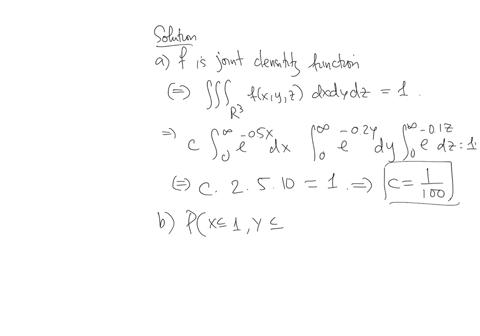 Solution
a) f is joint density function
(=) ∭_{R³} f(x,y,z) dxdydz = 1.
=) c ∫_0^∞ e^{-0.5x} dx ∫_0^∞ e^{-0.2y} dy ∫_0^∞ e^{-0.1z} dz = 1
(=) c. 2. 5. 10 = 1. =) c = 1/100
b) P(x ≤ 1, y ≤